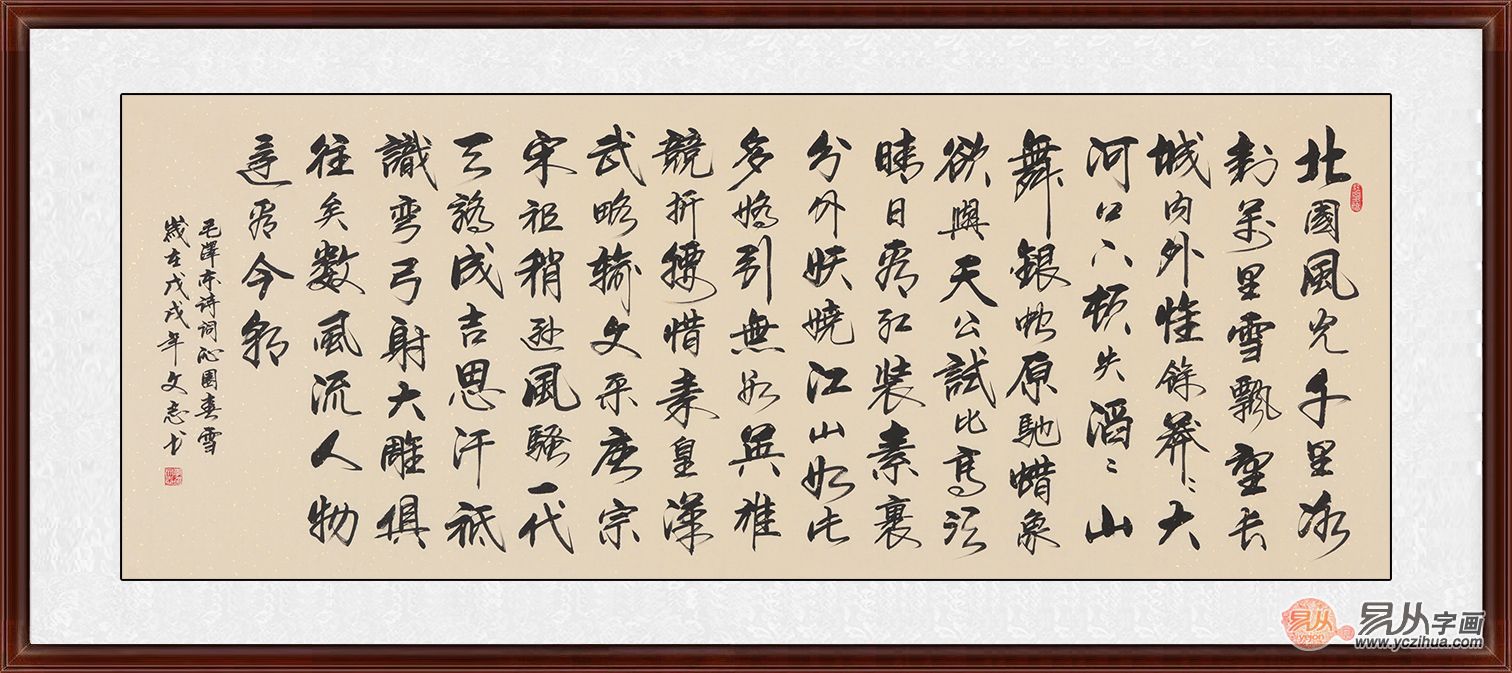 北國風光千里冰
封萬里雪飄望長
城内外惟餘莽〻大
河上下頓失滔〻山
舞銀蛇原馳蜡象
欲與天公試比高須
晴日看紅裝素裹
分外妖嬈江山如此
多嬌引無數英雄
競折腰惜秦皇漢
武略輸文采唐宗
宋祖稍遜風騷一代
天驕成吉思汗祗
識彎弓射大雕俱
往矣數風流人物
還看今朝
毛澤東詩詞沁園春雪
歲在戊戌年文志书
易从
易从字画
www.yczihua.com